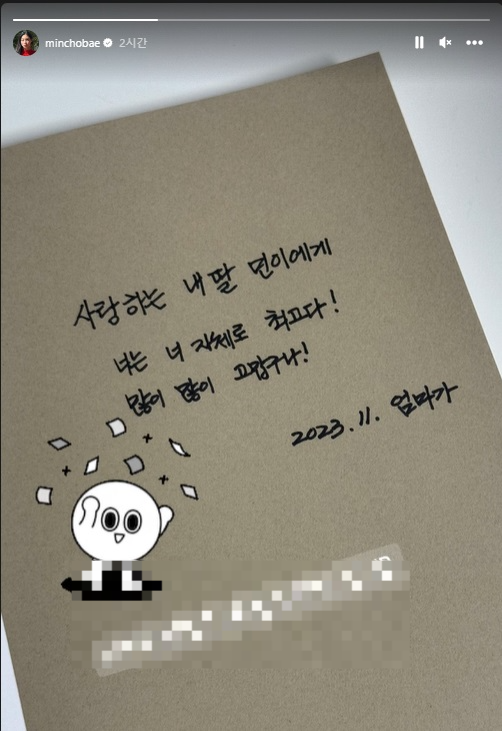 minchobae 2시간
사랑하는 내 딸 면이에게
너는 너 자체로 최고다!
많이 많이 고맙구나!
2023.11. 엄마가